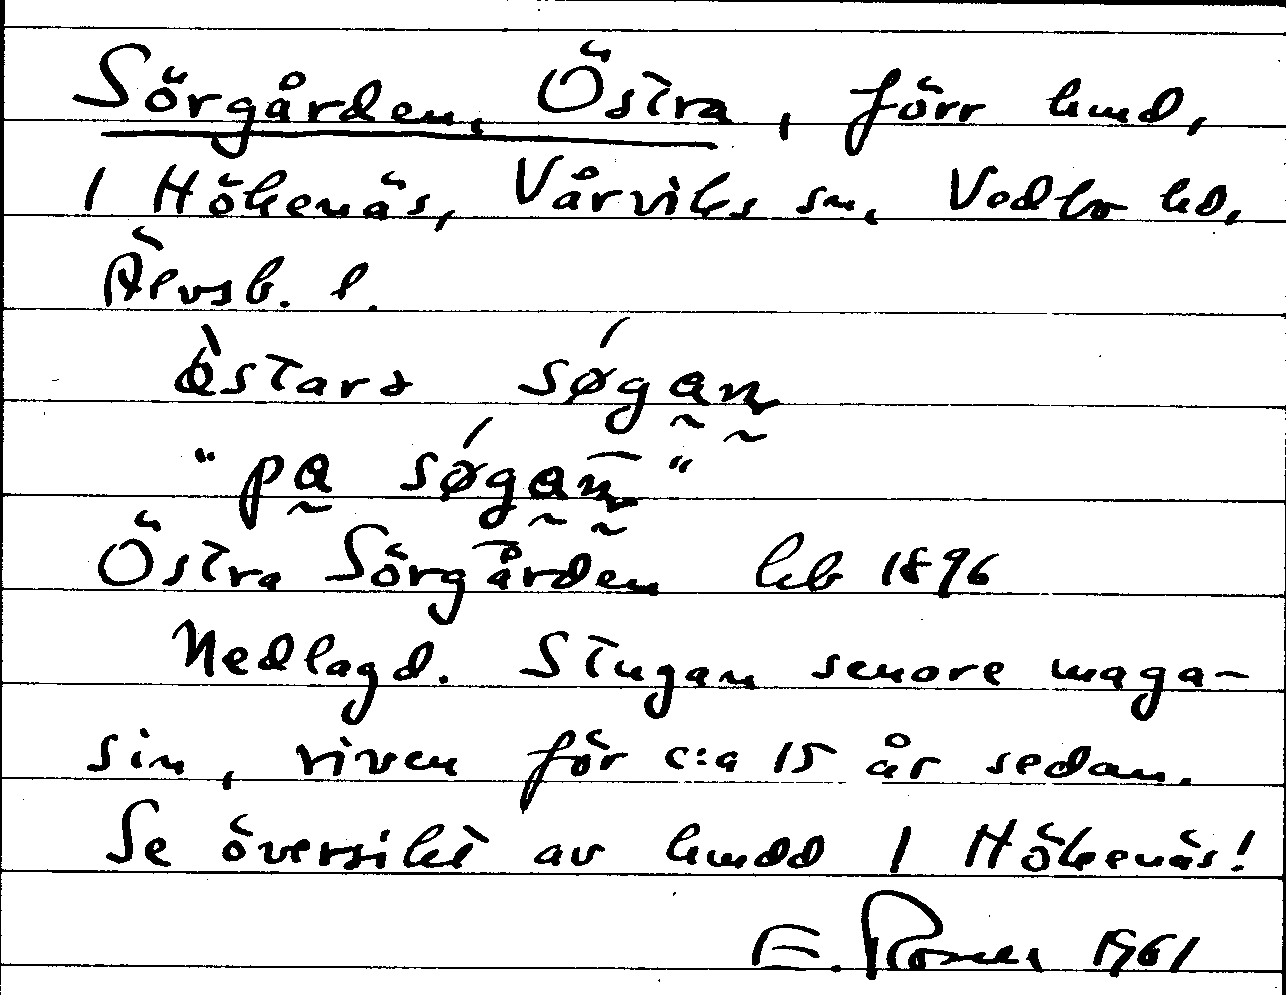 Sörgården, Östra, förr hmd,
1 Hökenäs, Vårviks sn, Vedbo hd,
Älvsb. l.
søgan̰
"pa̰ søga̰n̰"
Östra Sörgården hb 1896
Nedlagd. Stugan senare maga-
sin, riven för c:a 15 år sedan.
Se översikt av hmdd 1 Hökenäs!
E. 1961